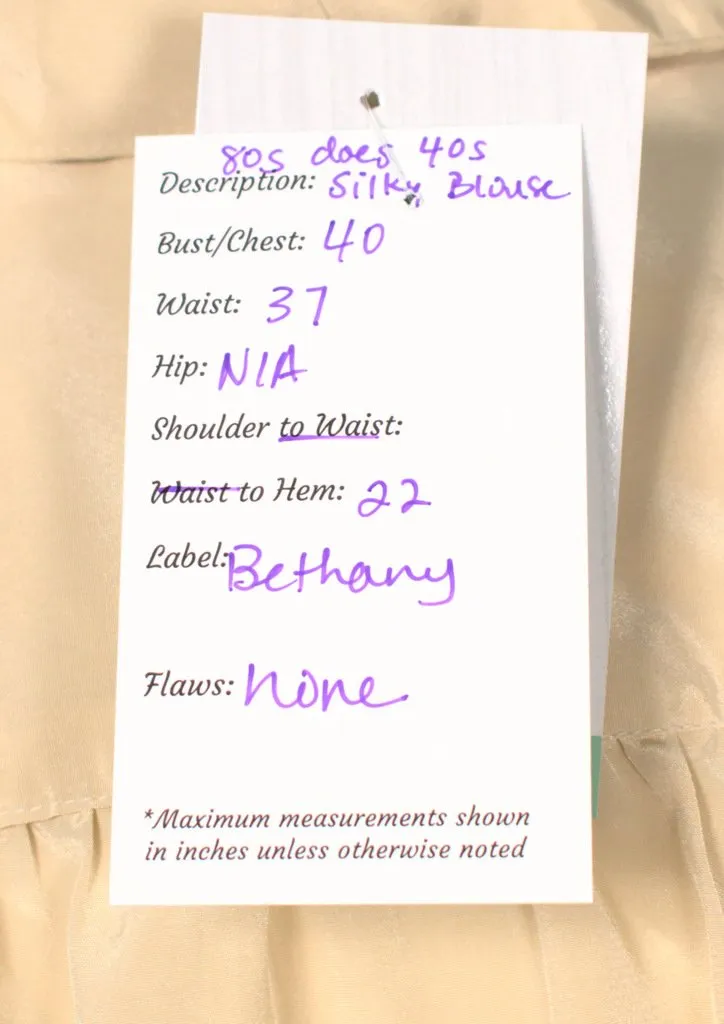 80s does 40s
Description: Silky Blouse
Bust/Chest: 40
Waist: 37
Hip: N/A
Shoulder to Waist:
Waist to Hem: 22
Label: Bethany
Flaws: none
*Maximum measurements shown
in inches unless otherwise noted